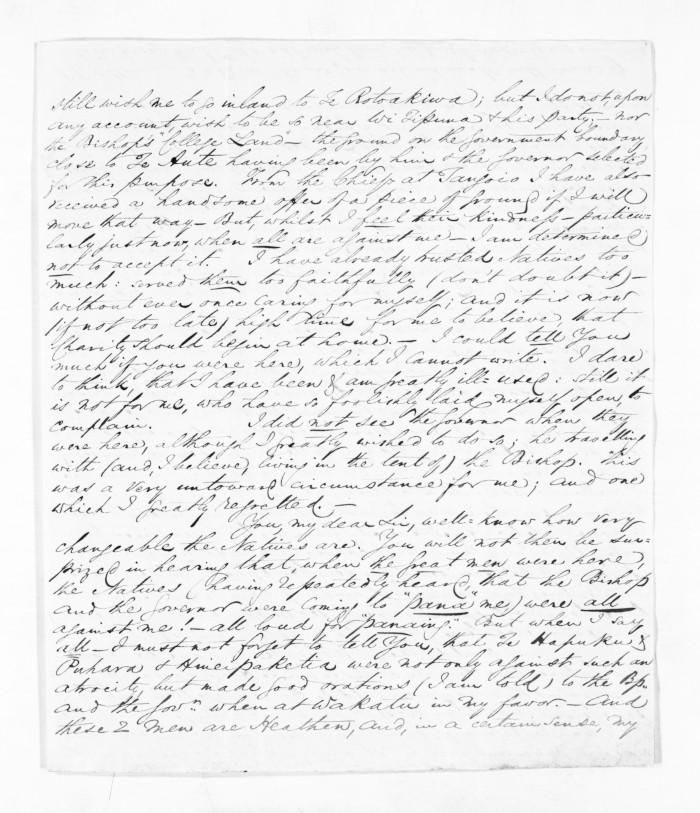 still wish me to go inland to Te Rotoakiwa; but I do not, upon
any account wish to be so near Wi Tipuna & his Party; – nor
the Bishop's "College Land" – the ground on the Government boundary
close to Te Aute having been by him & the Governor selected
for this purpose. From the Chiefs at Tangoio I have also
received a handsome offer of a piece of ground if I will
move that way – But, whilst I feel their kindness – particu=
larly just now, when all are against me – I am determined
not to accept it. I have already trusted Natives too
much: served them too faithfully (don't doubt it) –
without ever once caring for myself; and it is now
(if not too late) high time for me to believe that
Charity should begin at home. – I could tell You
much if you were here, which I cannot write. I dare
to think, that I have been & am greatly ill=used: still it
is not for me, who have so foolishly laid myself open, to
complain. I did not see the Governor when they
were here, although I greatly wished to do so; he travelling
with (and, I believe, living in the tent of) the Bishop. This
was a very untoward circumstance for me; and one
which I greatly regretted. –
You, my dear Sir, well=know how very
changeable the Natives are. You will not then be sur=
prized in hearing that, when the great men were here,
the Natives (having repeatedly heard, that the Bishop
and the Governor were coming to "pana" me) were all
against me! – all loud for "panaing." But when I say
all – I must not forget to tell You, that Te Hapuku &
Puhara & Hineipaketia were not only against such an
atrocity, but made good orations (I am told) to the Bp.
and the Govr. when at Wakatu in my favor. – And
these 2 men are Heathen, and, in a certain sense, my